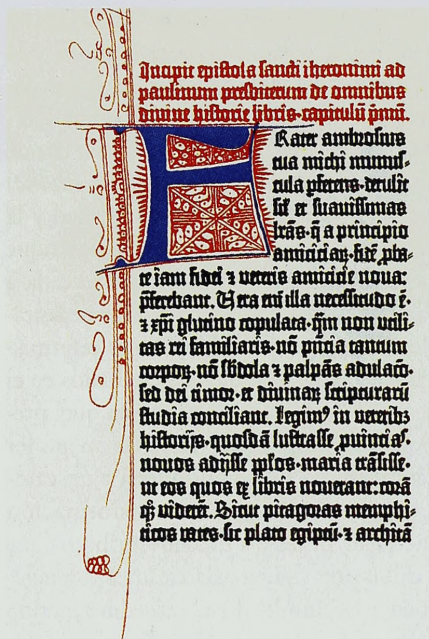 Incipit epistola sancti iheronimi ad
paulinum presbiterum de omnibus
divine historie libris · capitulū p̄mū.
FRater ambrosius
tua michi munus-
cula ꝑferens · detulit
sil̄ et suavissimas
l̄ras · q̄ a principio
amiciciaꝝ · fidē ꝓba-
te iam fidei ⁊ veteris amicicie nova:
p̄ferebant. Vera em̄ illa necessitudo ē ·
⁊ xp̄i glutino copulata · q̄m non utili-
tas rei familiaris · nō p̄ncia tantum
corpoꝝ · nō s̄bdola ⁊ palpās adulacō ·
sed dei timor · et divinaꝝ scripturarū
studia conciliant. Legimꝰ in veteribꝫ
historijs · quosdā lustrasse ꝓuincias ·
novos adijsse ppl̄os · maria trāsisse ·
ut eos quos ex libris noverant: corā
qꝫ viderēt. Sicut pitagoras memphi-
ticos vates · sic plato egiptū · ⁊ architā